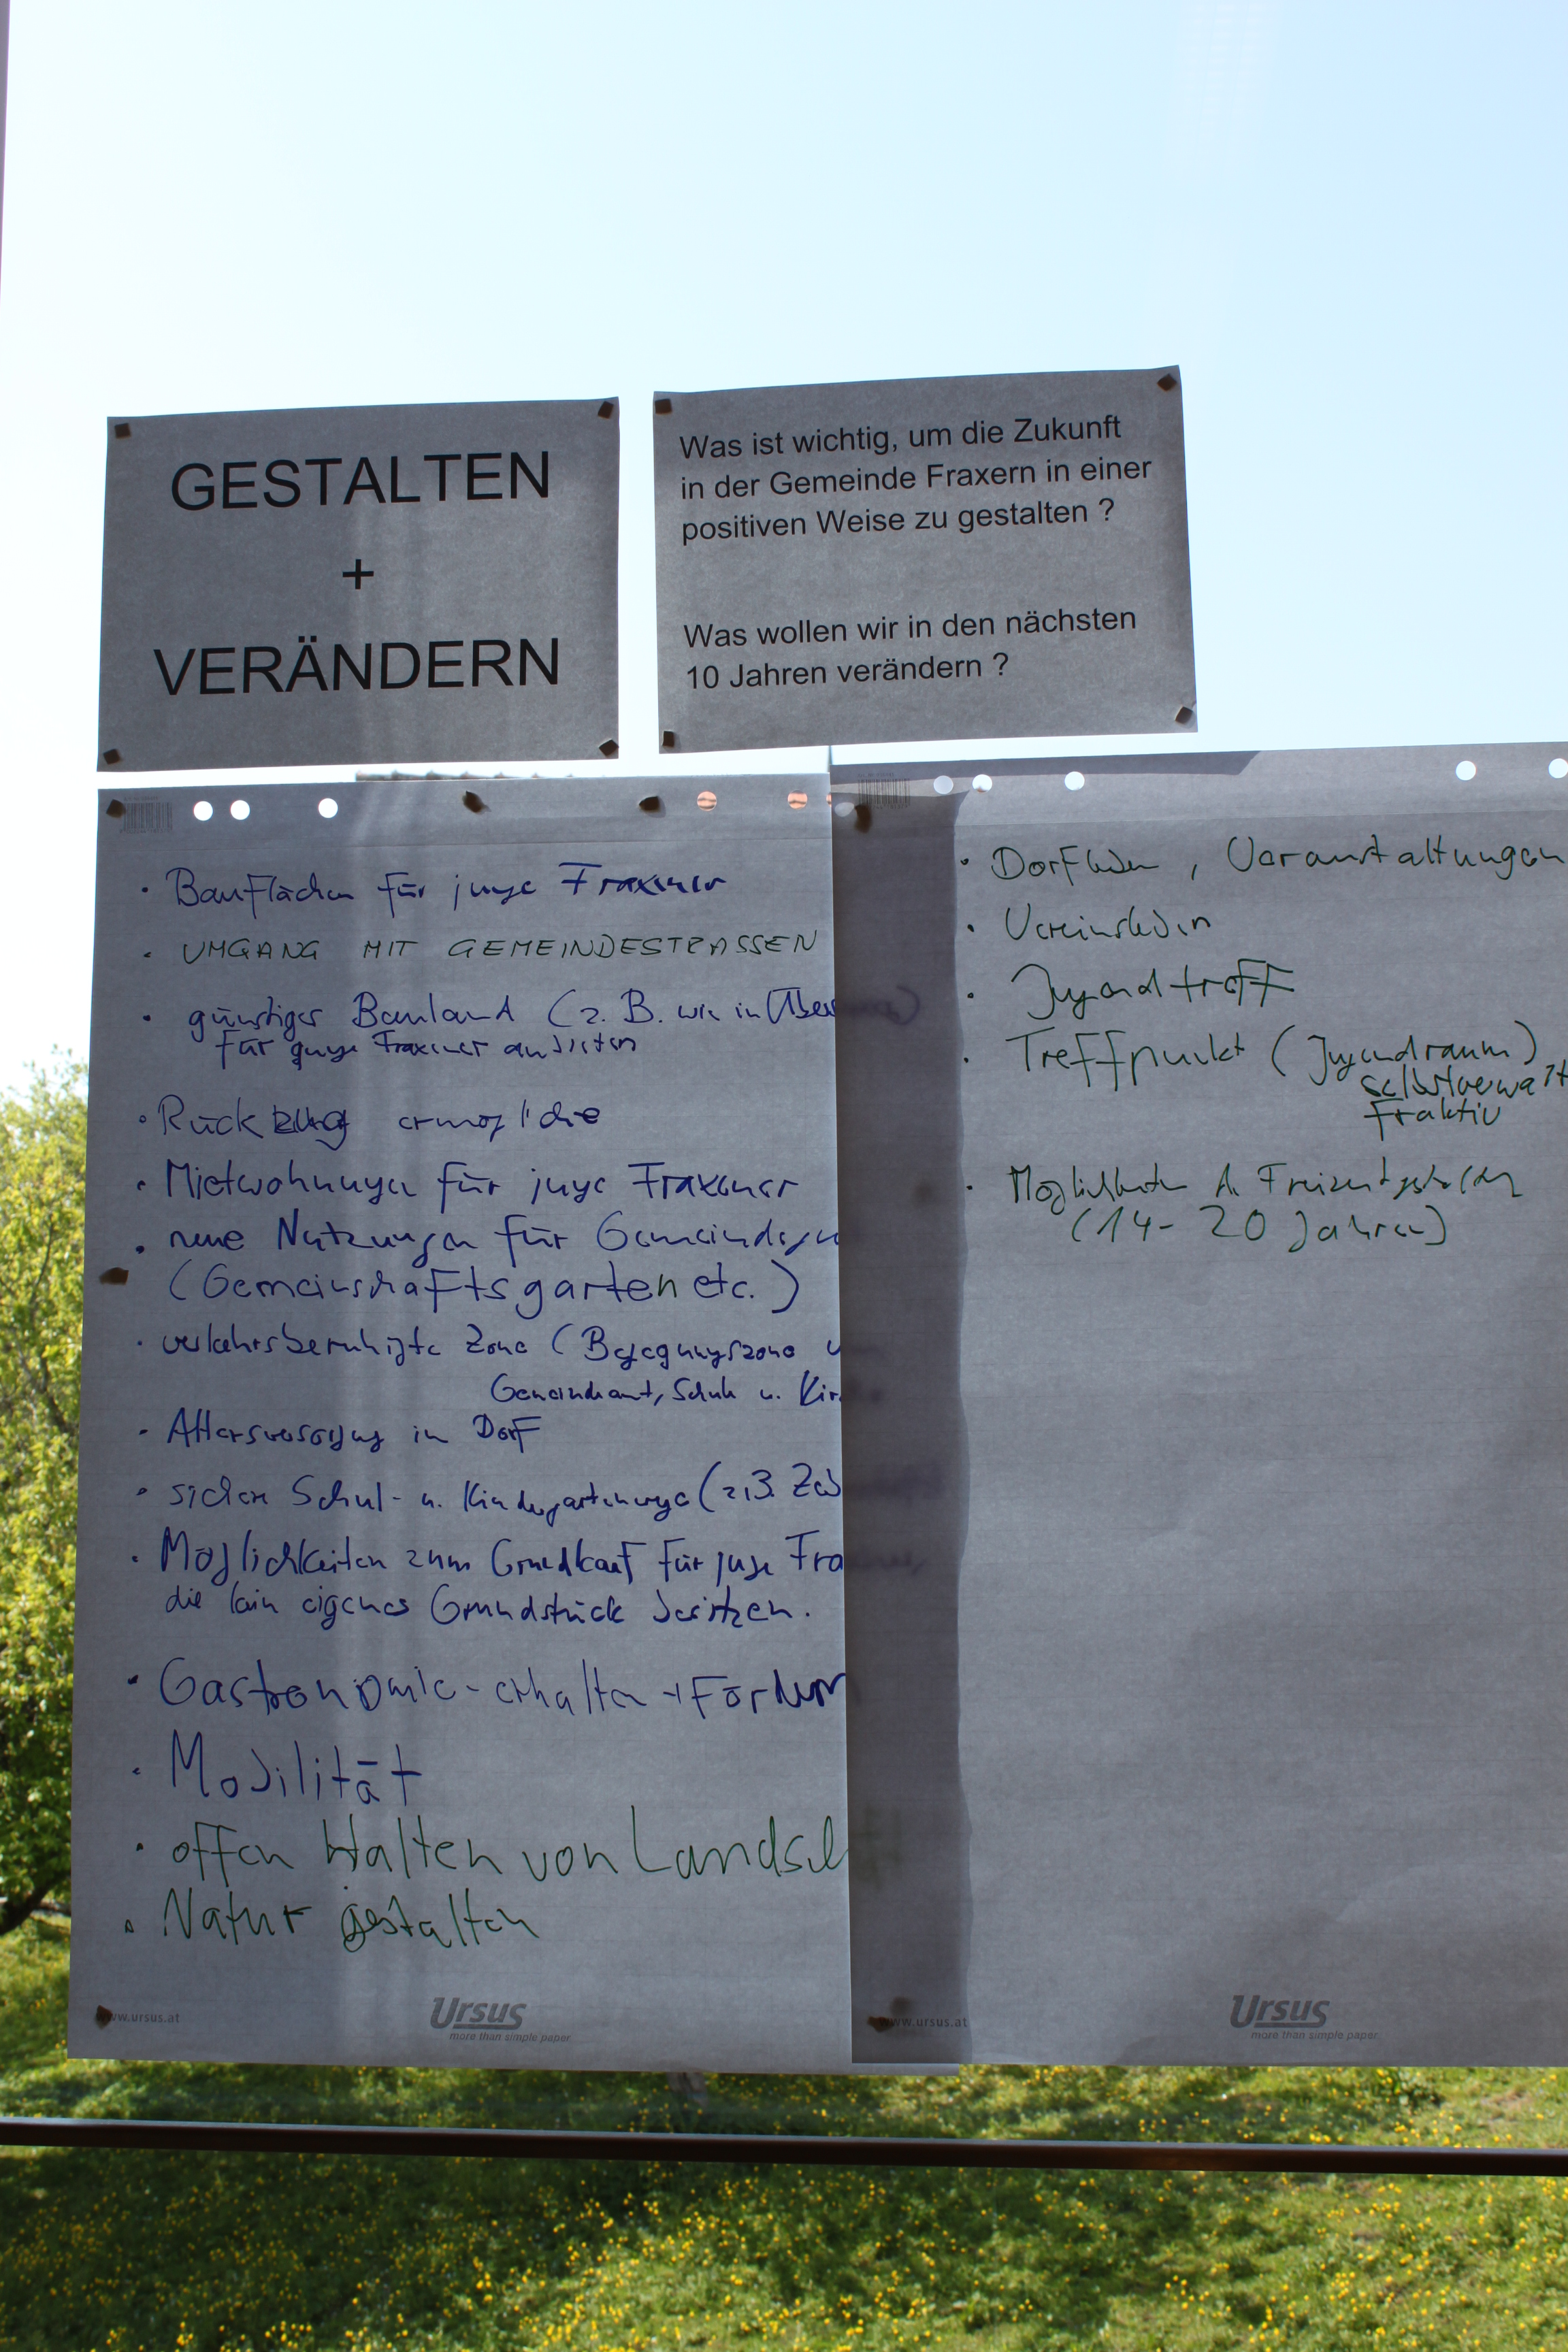 GESTALTEN
+
VERÄNDERN
Was ist wichtig, um die Zukunft
in der Gemeinde Fraxern in einer
positiven Weise zu gestalten ?
Was wollen wir in den nächsten
10 Jahren verändern ?
• Bauflächen für junge Fraxener
• UMGANG MIT GEMEINDESTRASSEN
• günstiges Bauland (z. B. wie in
für junge Fraxener anbieten
• Rückzug ermögliche
• Mietwohnungen für junge Fraxener
• neue Nutzungen für
(Gemeinschaftsgarten etc.)
• verkehrsberuhigte Zone (Begegnungszone
Gemeindeamt, Schule u.
• Altersversorgung im Dorf
• sichere Schul- u. Kindergartenwege (z.B.
• Möglichkeiten zum Grundkauf für junge
die kein eigenes Grundstück besitzen.
• Gastronomie - erhalten + fördern
• Mobilität
• offen Halten von
• Natur gestalten
www.ursus.at
Ursus
more than simple paper
• Dorfleben, Veranstaltungen
• Vereinsleben
• Jugendtreff
• Treffpunkt (Jugendraum)
• Möglichkeiten
(14 - 20 Jahren)
www.ursus.at
Ursus
more than simple paper